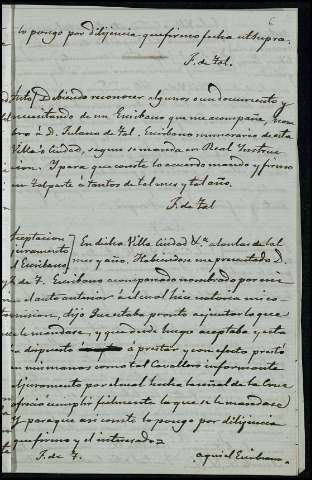 6
lo pongo por dilijencia que firmo fecha ut supra.
F. de Tal.
Auto Debiendo reconocer algunos o un documento y
necesitando de un Escribano que me acompañe, nom
bro á D. Fulano de Tal, Escribano numerario de esta
Villa o Ciudad, segun se manda en Real Instruc
cion. Y para que conste lo acuerdo mando y firmo
en tal parte á tantos de tal mes y tal año.
F. de Tal
Aceptacion
juramento
el Escribano
En dicha Villa Ciudad &a. a los tantos de tal
mes y año. Habiendose me presentado D.
F. de T. Escribano acompañado nombrado por mi
en el auto anterior á el cual hice notoria mi co
mision, dijo: Que estaba pronto a ejecutar lo que
se le mandase, y que desde luego aceptaba y esta
ba dispuesto á prestar y con efecto prestó
en mis manos como tal Cavallero informante
el juramento por el cual hecha la señal de la Cruz
ofreció cumplir fielmente lo que se le mandase
Y para que asi conste lo pongo por dilijencia
que firmo y el interesado =
F. de T. aqui el Escribano.